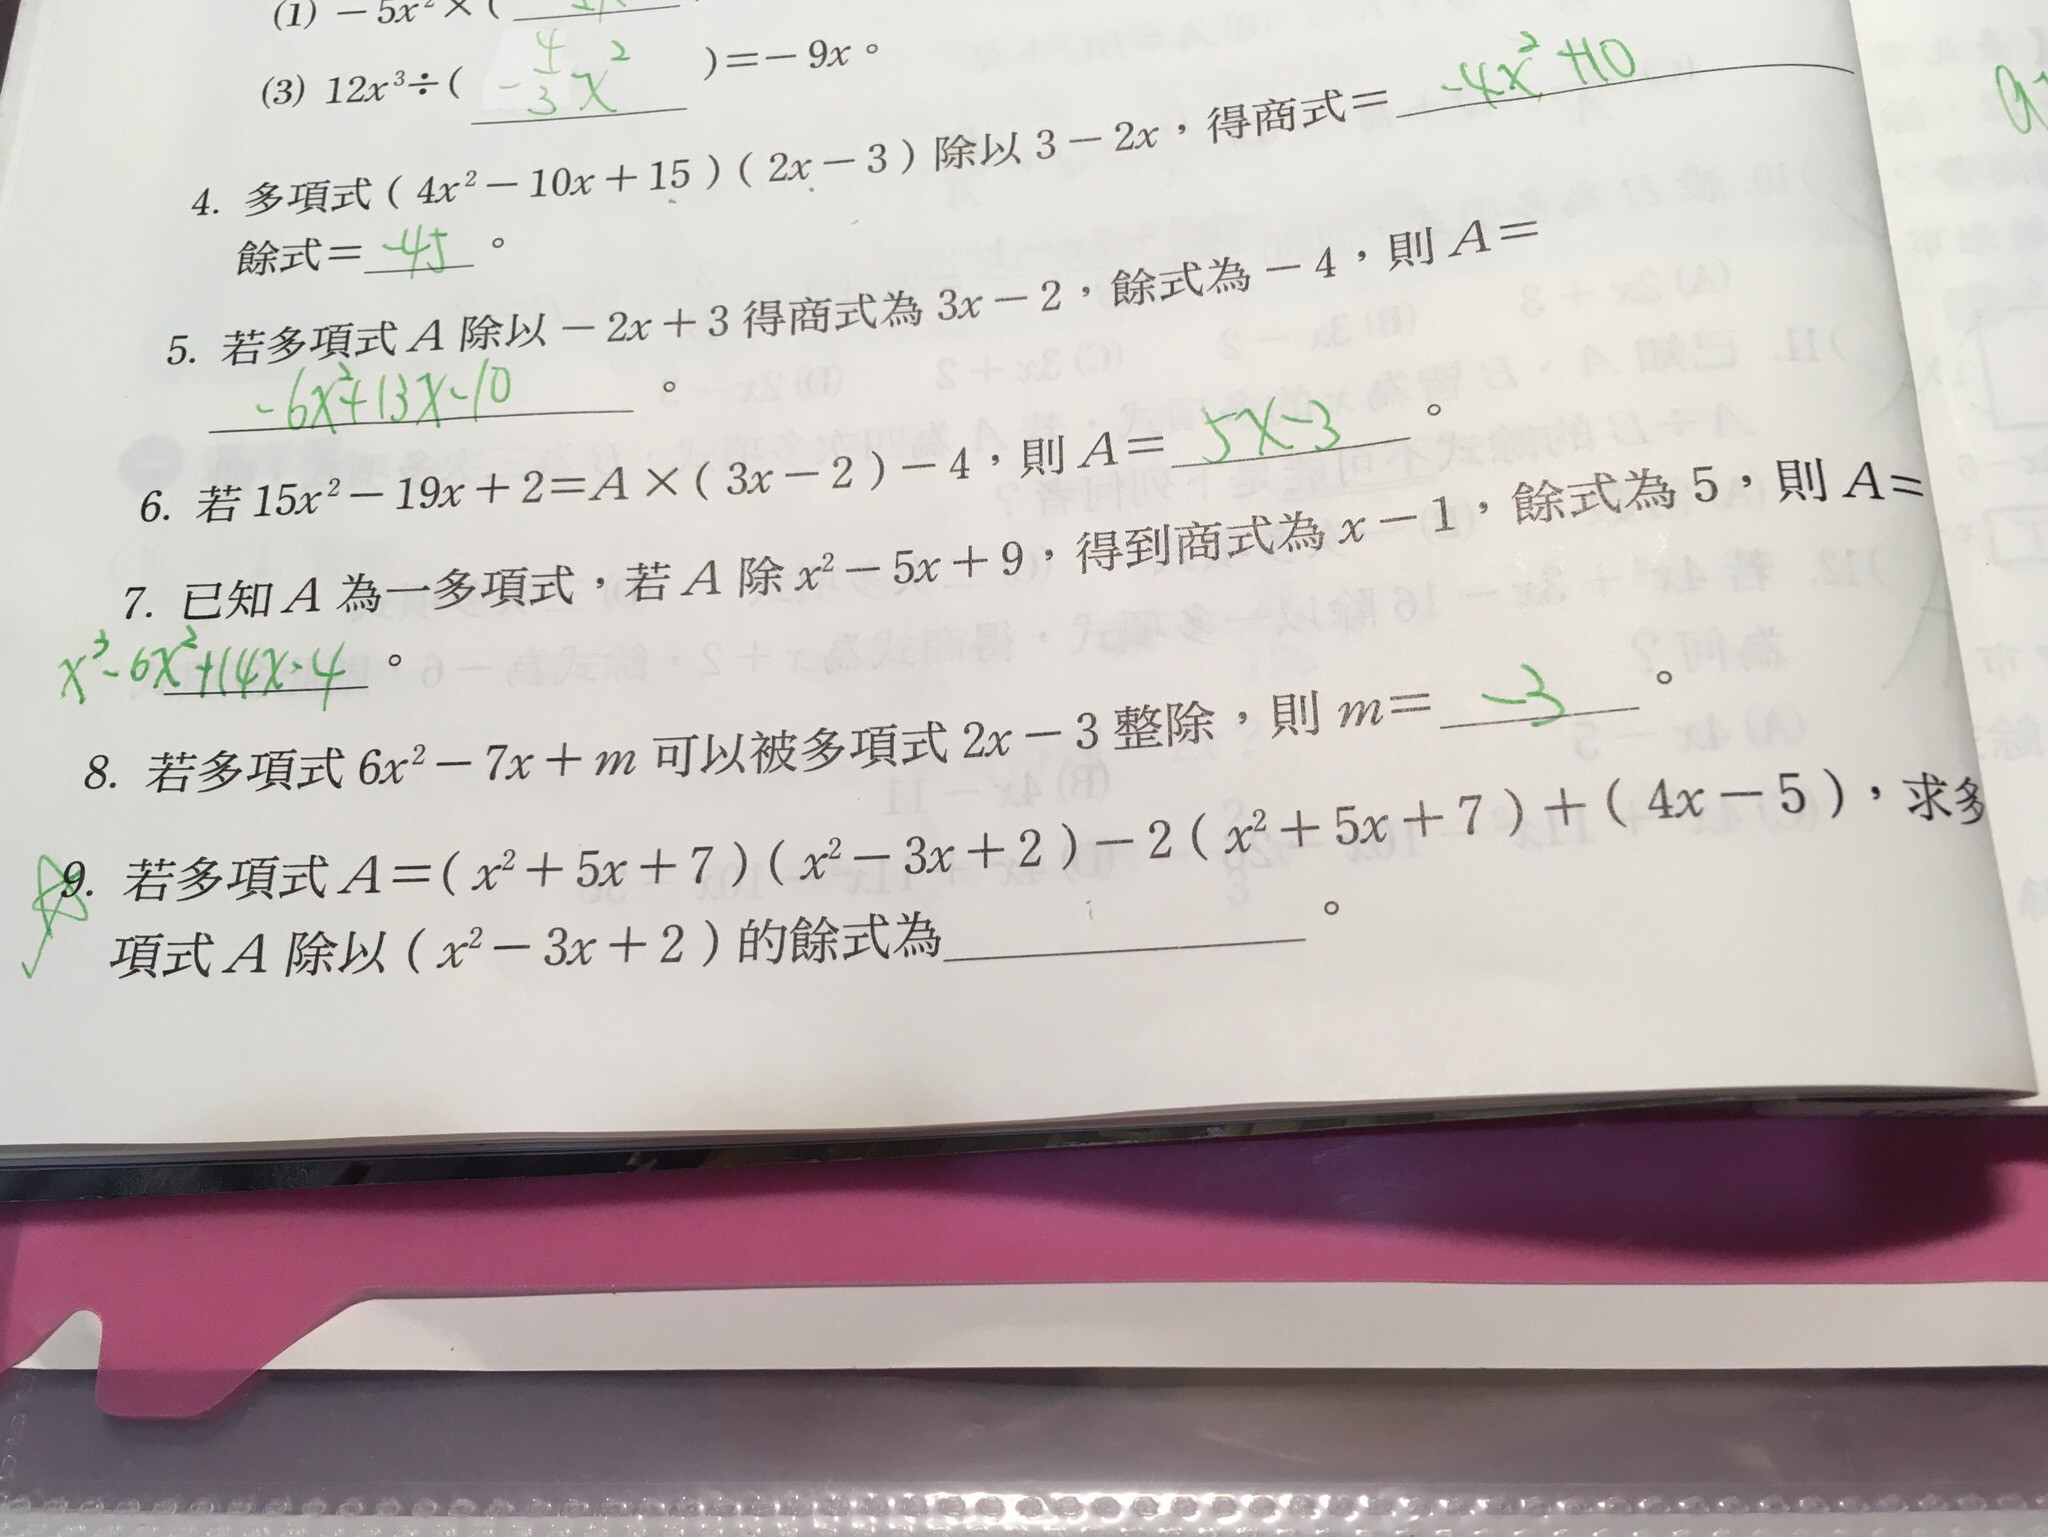 (1) －5x²×(
(3) 12x³÷( －4/3 x² )＝－9x。
4. 多項式 ( 4x²－10x＋15 ) ( 2x－3 ) 除以 3－2x，得商式＝ -4x²+10
餘式＝ -45 。
5. 若多項式 A 除以－2x＋3 得商式為 3x－2，餘式為－4，則 A＝
-6x²+13x-10 。
6. 若 15x²－19x＋2＝A×( 3x－2 )－4，則 A＝ 5x-3 。
7. 已知 A 為一多項式，若 A 除 x²－5x＋9，得到商式為 x－1，餘式為 5，則 A＝
x³-6x²+14x-4 。
8. 若多項式 6x²－7x＋m 可以被多項式 2x－3 整除，則 m＝ -3 。
9. 若多項式 A＝( x²＋5x＋7 ) ( x²－3x＋2 )－2 ( x²＋5x＋7 )＋( 4x－5 )，求多
項式 A 除以 ( x²－3x＋2 ) 的餘式為 。